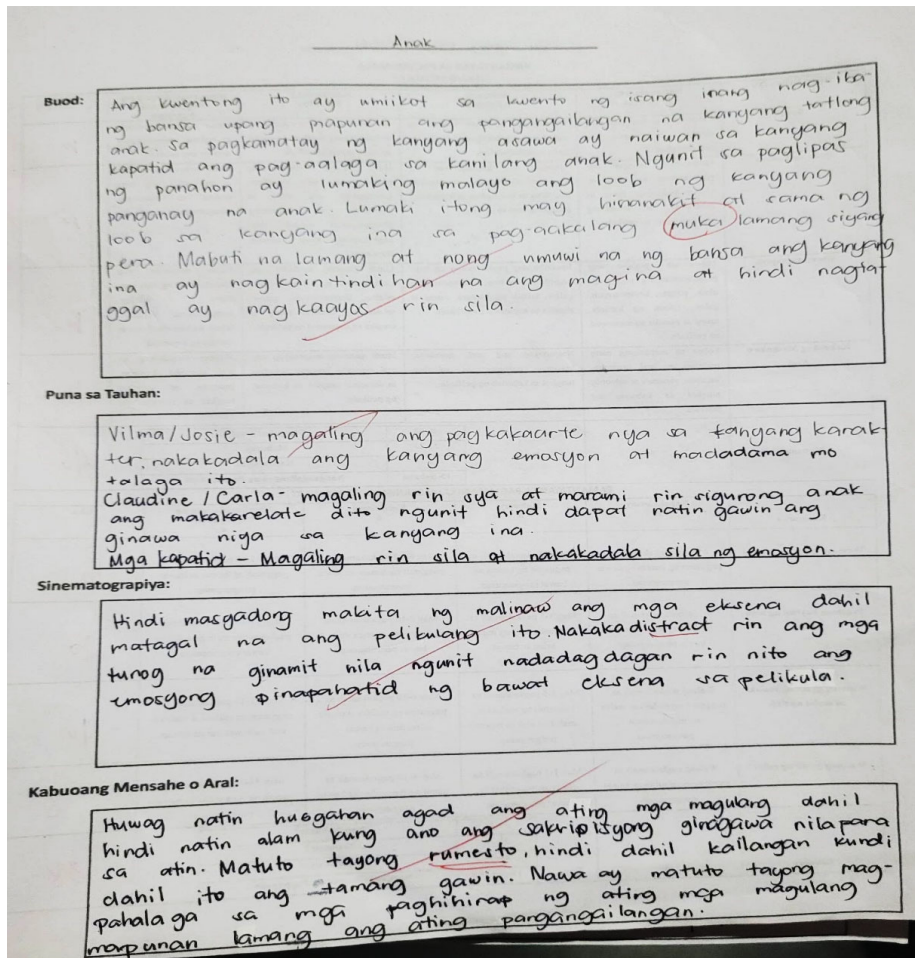 Anak
Buod:
Ang kwentong ito ay umiikot sa kwento ng isang inang nag-iba-
ng bansa upang mapunan ang pangangailangan na kanyang tatlong
anak. Sa pagkamatay ng kanyang asawa ay naiwan sa kanyang
kapatid ang pag-aalaga sa kanilang anak. Ngunit sa paglipas
ng panahon ay lumaking malayo ang loob ng kanyang
panganay na anak. Lumaki itong may hinanakit at sama ng
loob sa kanyang ina sa pag-aakalang muka lamang siyang
pera. Mabuti na lamang at nong umuwi na ng bansa ang kanyang
ina ay nagkaintindihan na ang magina at hindi nagtat
ggal ay nagkaayos rin sila.
Puna sa Tauhan:
Vilma/Josie - magaling ang pagkakaarte nya sa kanyang karak-
ter. nakakadala ang kanyang emosyon at madadama mo
talaga ito.
Claudine / Carla - magaling rin sya at marami rin sigurong anak
ang makakarelate dito ngunit hindi dapat natin gawin ang
ginawa niya sa kanyang ina.
Mga kapatid - Magaling rin sila at nakakadala sila ng emosyon.
Sinematograpiya:
Hindi masyadong makita ng malinaw ang mga eksena dahil
matagal na ang pelikulang ito. Nakakadistract rin ang mga
tunog na ginamit nila ngunit nadadagdagan rin nito ang
emosyong pinapahatid ng bawat eksena sa pelikula.
Kabuoang Mensahe o Aral:
Huwag natin husgahan agad ang ating mga magulang dahil
hindi natin alam kung ano ang sakripisyong ginagawa nila para
sa atin. Matuto tayong rumesto, hindi dahil kailangan kundi
dahil ito ang tamang gawin. Nawa ay matuto tayong mag-
pahalaga sa mga paghihirap ng ating mga magulang
mapunan lamang ang ating pangangailangan.